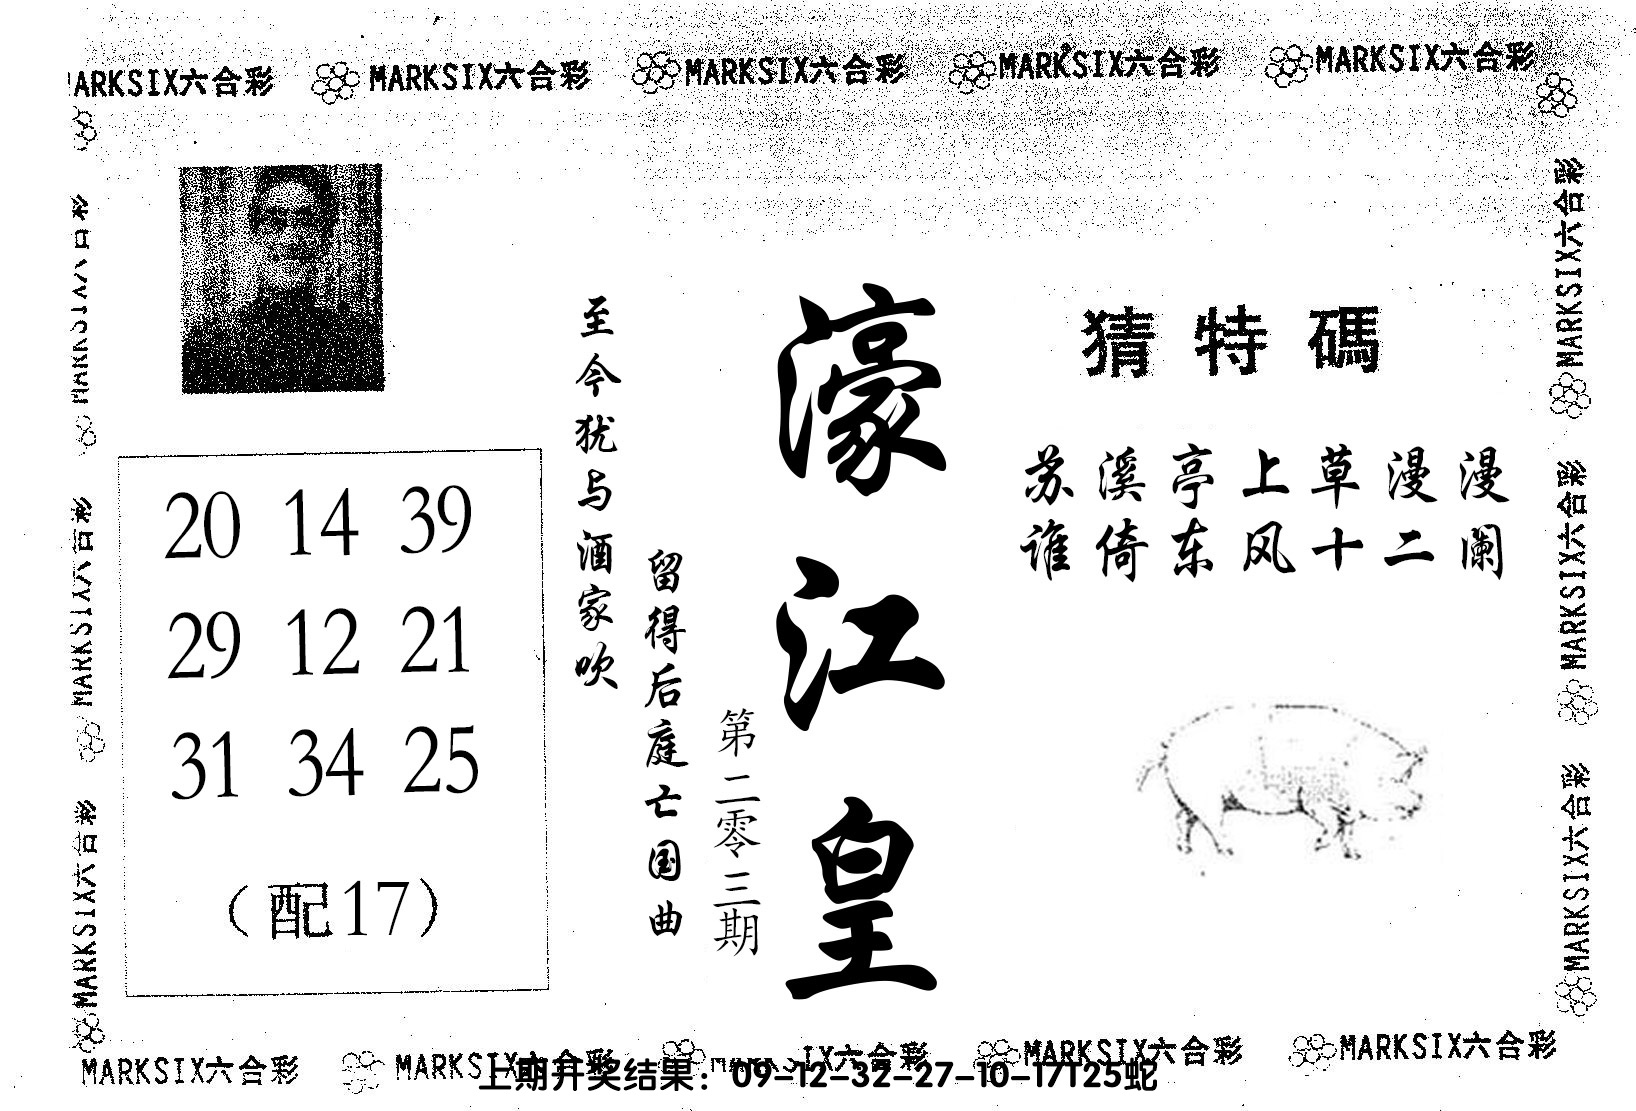 MARKSIX六合彩 MARKSIX六合彩 MARKSIX六合彩 MARKSIX六合彩 MARKSIX六合彩
猜特碼
苏溪亭上草漫漫
谁倚东风十二阑
濠江皇
第二零三期
留得后庭亡国曲
至今犹与酒家吹
20 14 39
29 12 21
31 34 25
(配17)
MARKSIX六合彩
MARKSIX六合彩
MARKSIX六合彩
MARKSIX六合彩
MARKSIX六合彩
MARKSIX六合彩
MARKSIX六合彩 MARKSIX六合彩 MARKSIX六合彩 MARKSIX六合彩 MARKSIX六合彩
上期开奖结果：09-12-32-27-10-17T25蛇